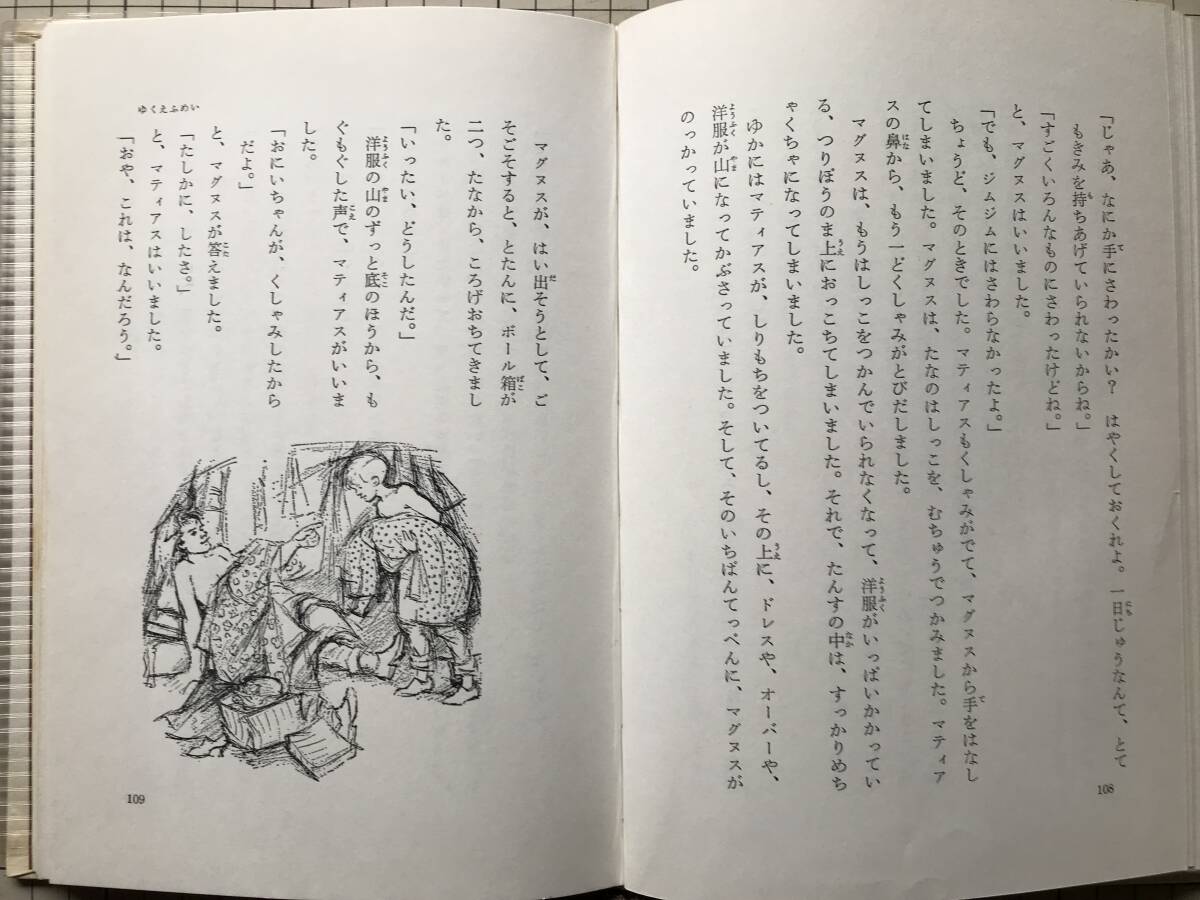 「じゃあ、なにか手にさわったかい？　はやくしておくれよ。一日じゅうなんて、とて
もきみを持ちあげていられないからね。」
「すごくいろんなものにさわったけどね。」
と、マグヌスはいいました。
「でも、ジムジムにはさわらなかったよ。」
ちょうど、そのときでした。マティアスもくしゃみがでて、マグヌスから手をはなし
てしまいました。マグヌスは、たなのはしっこを、むちゅうでつかみました。マティア
スの鼻から、もう一どくしゃみがとびだしました。
マグヌスは、もうはしっこをつかんでいられなくなって、洋服がいっぱいかかってい
る、つりぼうのま上におっこちてしまいました。それで、たんすの中は、すっかりめち
ゃくちゃになってしまいました。
ゆかにはマティアスが、しりもちをついてるし、その上に、ドレスや、オーバーや、
洋服が山になってかぶさっていました。そして、そのいちばんてっぺんに、マグヌスが
のっかっていました。
108
ゆくえふめい
マグヌスが、はい出そうとして、ご
そごそすると、とたんに、ボール箱が
二つ、たなから、ころげおちてきまし
た。
「いったい、どうしたんだ。」
洋服の山のずっと底のほうから、も
ぐもぐした声で、マティアスがいいま
した。
「おにいちゃんが、くしゃみしたから
だよ。」
と、マグヌスが答えました。
「たしかに、したさ。」
と、マティアスはいいました。
「おや、これは、なんだろう。」
109